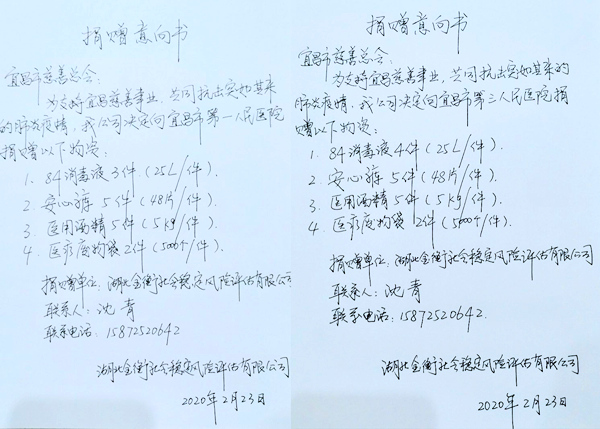 捐赠意向书
宜昌市慈善总会:
为支持宜昌慈善事业,共同抗击突如其来
的肺炎疫情,我公司决定向宜昌市第一人民医院
捐赠以下物资:
1. 84消毒液3件(25L/件).
2. 安心裤 5件(48片/件).
3. 医用酒精5件(5kg/件)
4. 医疗废物袋2件(500个/件).
捐赠单位:湖北金衡社会稳定风险评估有限公司
联系人:沈青
联系电话:15872520642
湖北金衡社会稳定风险评估有限公司
2020年2月23日
捐赠意向书
宜昌市慈善总会:
为支持宜昌慈善事业,共同抗击突如其来的
肺炎疫情,我公司决定向宜昌市第三人民医院捐
赠以下物资:
1. 84消毒液4件(25L/件).
2. 安心裤 5件(48片/件).
3. 医用酒精5件(5kg/件)
4. 医疗废物袋 2件(500个/件).
捐赠单位:湖北金衡社会稳定风险评估有限公司
联系人:沈青
联系电话:15872520642.
湖北金衡社会稳定风险评估有限公司
2020年2月23日